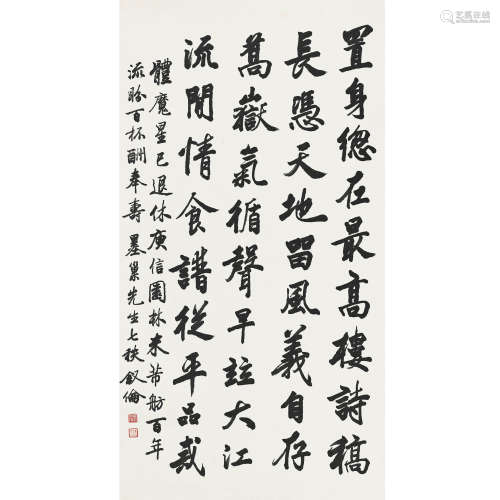 置身總在最高樓詩稿
長憑天地留風義自存
嵩嶽氣循聲早註大江
流閒情食譜從平品裁
體魔星已退休庾信園林未芾舫百年
流盼百杯酬奉壽墨巢先生七秩釵倫